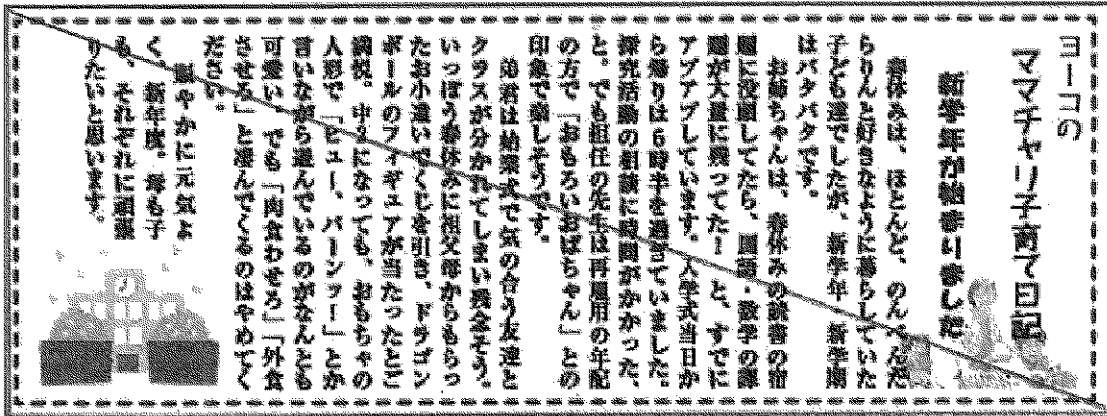 ヨーコの
ママチャリ子育て日記
新学年が始まりました
春休みは、ほとんど、のんべんだ
らりんと好きなように暮らしていた
子ども達でしたが、新学年、新学期
はバタバタです。
お姉ちゃんは、春休みの読書の宿
題に没頭してたら、国語・数学の課
題が大量に残ってた!と、すでに
アップアップしています。入学式当日か
ら帰りは6時半を過ぎていました。
探究活動の相談に時間がかかった、
と。でも担任の先生は再雇用の年配
の方で「おもろいおばちゃん」との
印象で楽しそうです。
弟君は始業式で気の合う友達と
クラスが分かれてしまい残念そう。
いっぽう春休みに祖父母からもらっ
たお小遣いでくじを引き、ドラゴン
ボールのフィギュアが当たったとご
満悦。中2になっても、おもちゃの
人形で「ビュー、バーンッ!」とか
言いながら遊んでいるのがなんとも
可愛い。でも「肉食わせろ」「外食
させろ」と凄んでくるのはやめてく
ださい。
賑やかに元気よ
く、新年度。母も子
も、それぞれに頑張
りたいと思います。